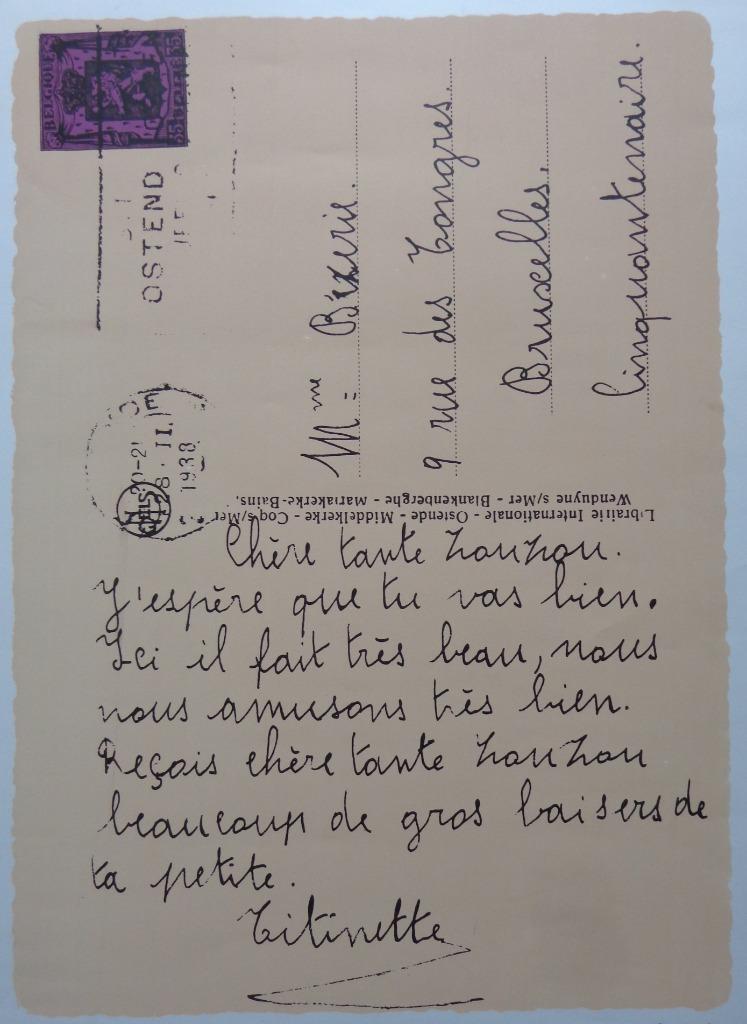 BELGIQUE
35
35
OSTEND
20-21
28 · II
1938
Mme = 
9 rue des Tongres.
Bruxelles.
Cinquantenaire.
Librairie Internationale - Ostende - Middelkerke - Coq s/Mer
Wenduyne s/Mer - Blankenberghe - Mariakerke-Bains.
Chère tante Zouzou.
J'espère que tu vas bien.
Ici il fait très beau, nous
nous amusons très bien.
Reçois chère tante Zouzou
beaucoup de gros baisers de
ta petite.
Titinette